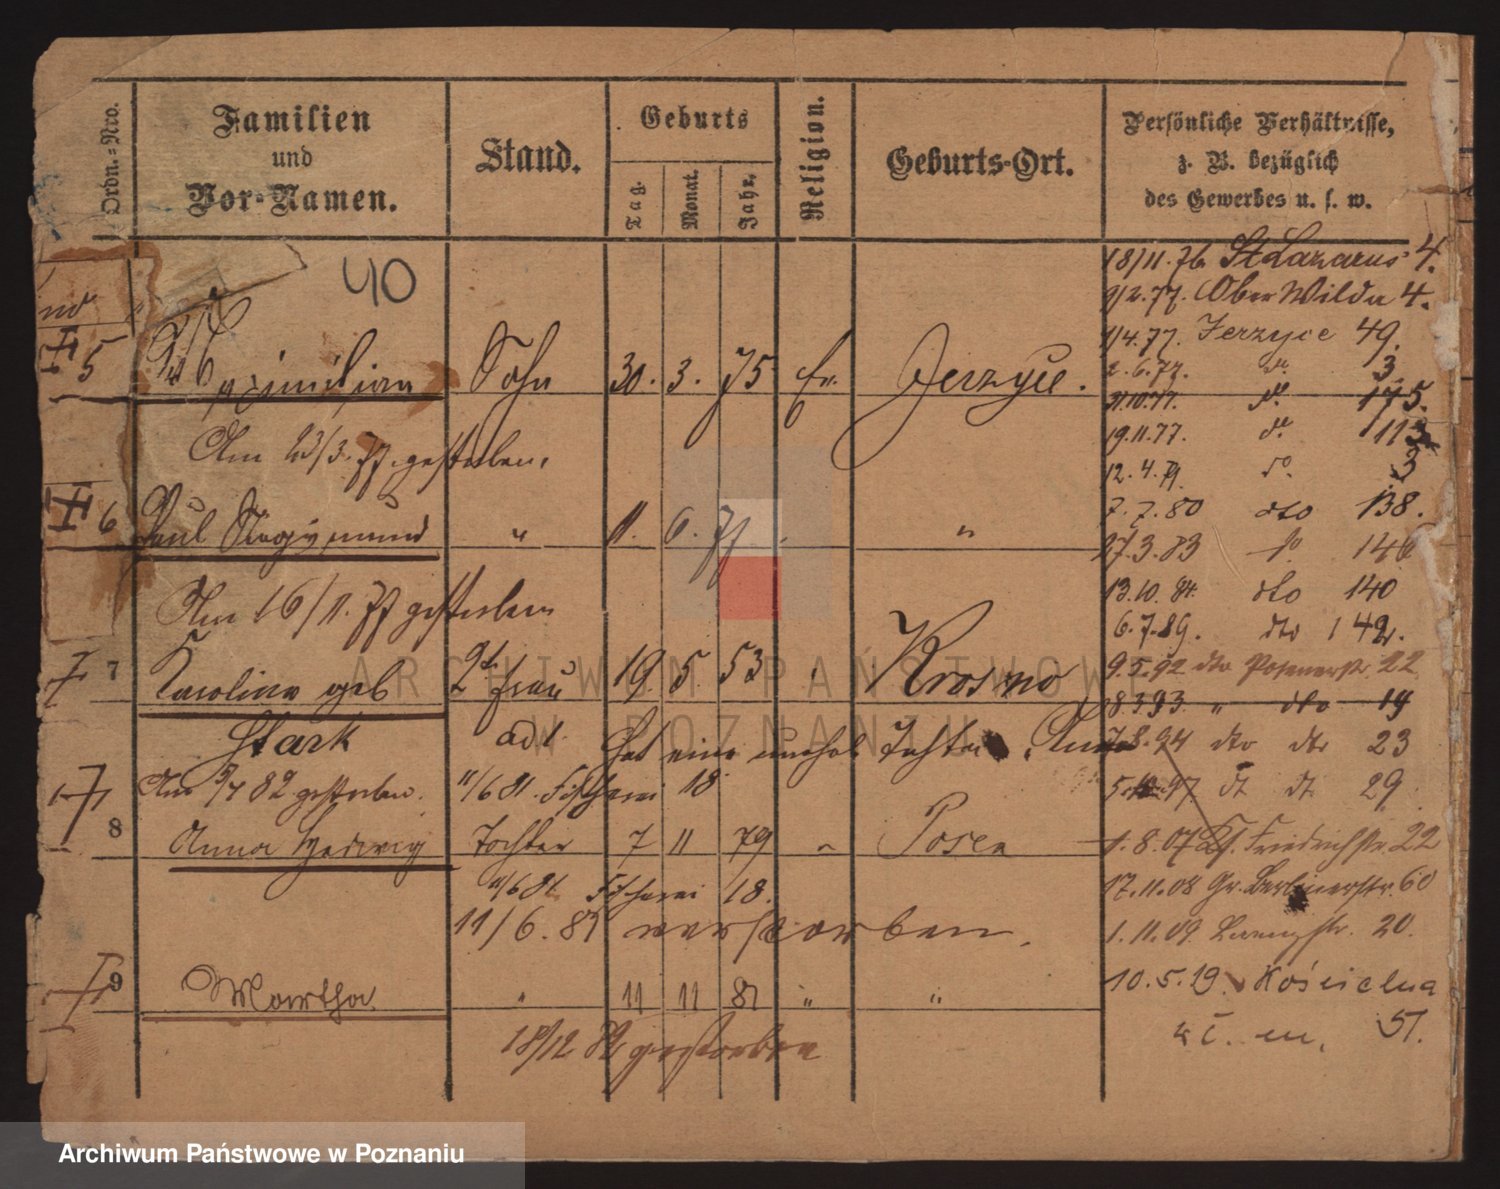 Ordn.=Nro.
Familien
und
Vor=Namen.
Stand.
Geburts
Tag.
Monat.
Jahr.
Religion.
Geburts-Ort.
Persönliche Verhältnisse,
z. B. bezüglich
des Gewerbes u. s. w.
40
5 Maximilian Sohn 30. 3. 75 Jerzyce.
Am 23/3. 77 gestorben.
6 Paul Siegismund " 11. 6. 77 "
Am 16/11. 77 gestorben
7 Karoline geb 2t. Frau 19. 5. 53 Krosno
Stark adt. Hat eine unehel Tochter
Am 5/7 82 gestorben. 11/6 81. Fischerei 18
8 Anna Hedwig Tochter 7 11 79 " Posen
11/6 81 Fischerei 18.
11/6. 81 verstorben.
9 Martha " 11 11 81 " "
18/12 82 gestorben
18/11. 76 St Lazarus 4.
9/2. 77. Ober Wilda 4.
1/4. 77. Jerzyce 49.
2. 6. 77. do. 3.
31.10.77. do. 175.
19.11.77. do. 113
12. 4. 79. do. 3
7. 7. 80 dto 138.
27. 3. 83 do 146
13. 10. 84. dto 140
6. 7. 89. dto 142.
9. 5. 92 dto Posenerstr. 22
8 3 93 " dto 19
7. 8. 94 dto dto 23
97 dt dt. 29
1. 8. 07 Kf. Friedrichstr. 22
17. 11. 08 Gr. Berlinerstr. 60
1. 11. 09. 20.
10. 5. 19. Kościelna
m. 51.
ARCHIWUM PAŃSTWOWE
W POZNANIU
Archiwum Państwowe w Poznaniu